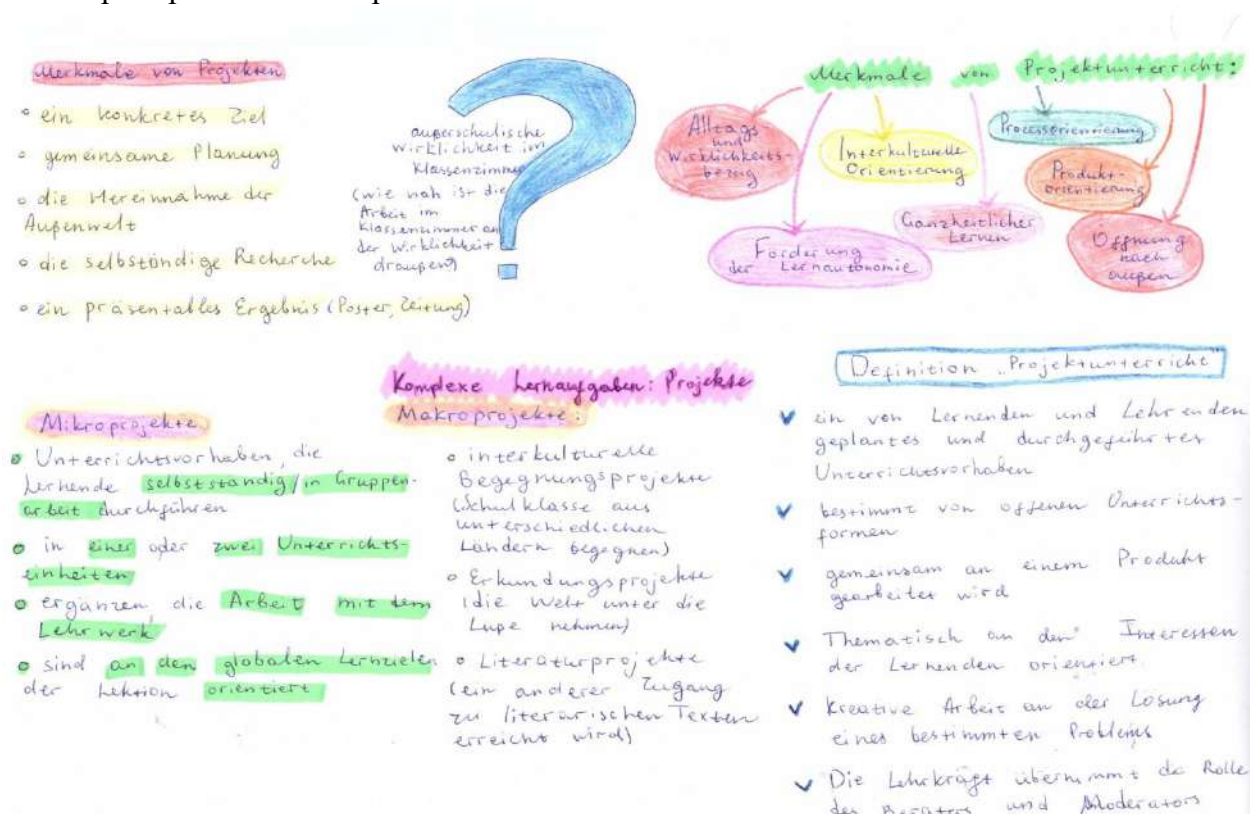 Merkmale von Projekten
ein konkretes Ziel
gemeinsame Planung
die Hereinnahme der
Außenwelt
die selbständige Recherche
ein präsentables Ergebnis (Poster, Zeitung)
außerschulische
Wirklichkeit im
Klassenzimmer
(wie nah ist die
Arbeit im
Klassenzimmer an
der Wirklichkeit
draußen)
?
Merkmale von Projektunterricht:
Alltags
und
Wirklichkeits-
bezug
Interkulturelle
Orientierung
Prozessorientierung
Produkt-
orientierung
Förderung
der Lernautonomie
Ganzheitlicher
Lernen
Öffnung
nach
außen
Komplexe Lernaufgaben: Projekte
Mikroprojekte
Unterrichtsvorhaben, die
Lernende selbstständig/in Gruppen-
arbeit durchführen
in einer oder zwei Unterrichts-
einheiten
ergänzen die Arbeit mit dem
Lehrwerk
sind an den globalen Lernzielen
der Lektion orientiert
Makroprojekte:
interkulturelle
Begegnungsprojekte
(Schulklasse aus
unterschiedlichen
Ländern begegnen)
Erkundungsprojekte
(die Welt unter die
Lupe nehmen)
Literaturprojekte
(ein anderer Zugang
zu literarischen Texten
erreicht wird)
Definition „Projektunterricht"
ein von Lernenden und Lehrenden
geplantes und durchgeführtes
Unterrichtsvorhaben
bestimmt von offenen Unterrichts-
formen
gemeinsam an einem Produkt
gearbeitet wird
Thematisch an den Interessen
der Lernenden orientiert
kreative Arbeit an der Lösung
eines bestimmten Problems
Die Lehrkraft übernimmt de Rolle
des Beraters und Moderators